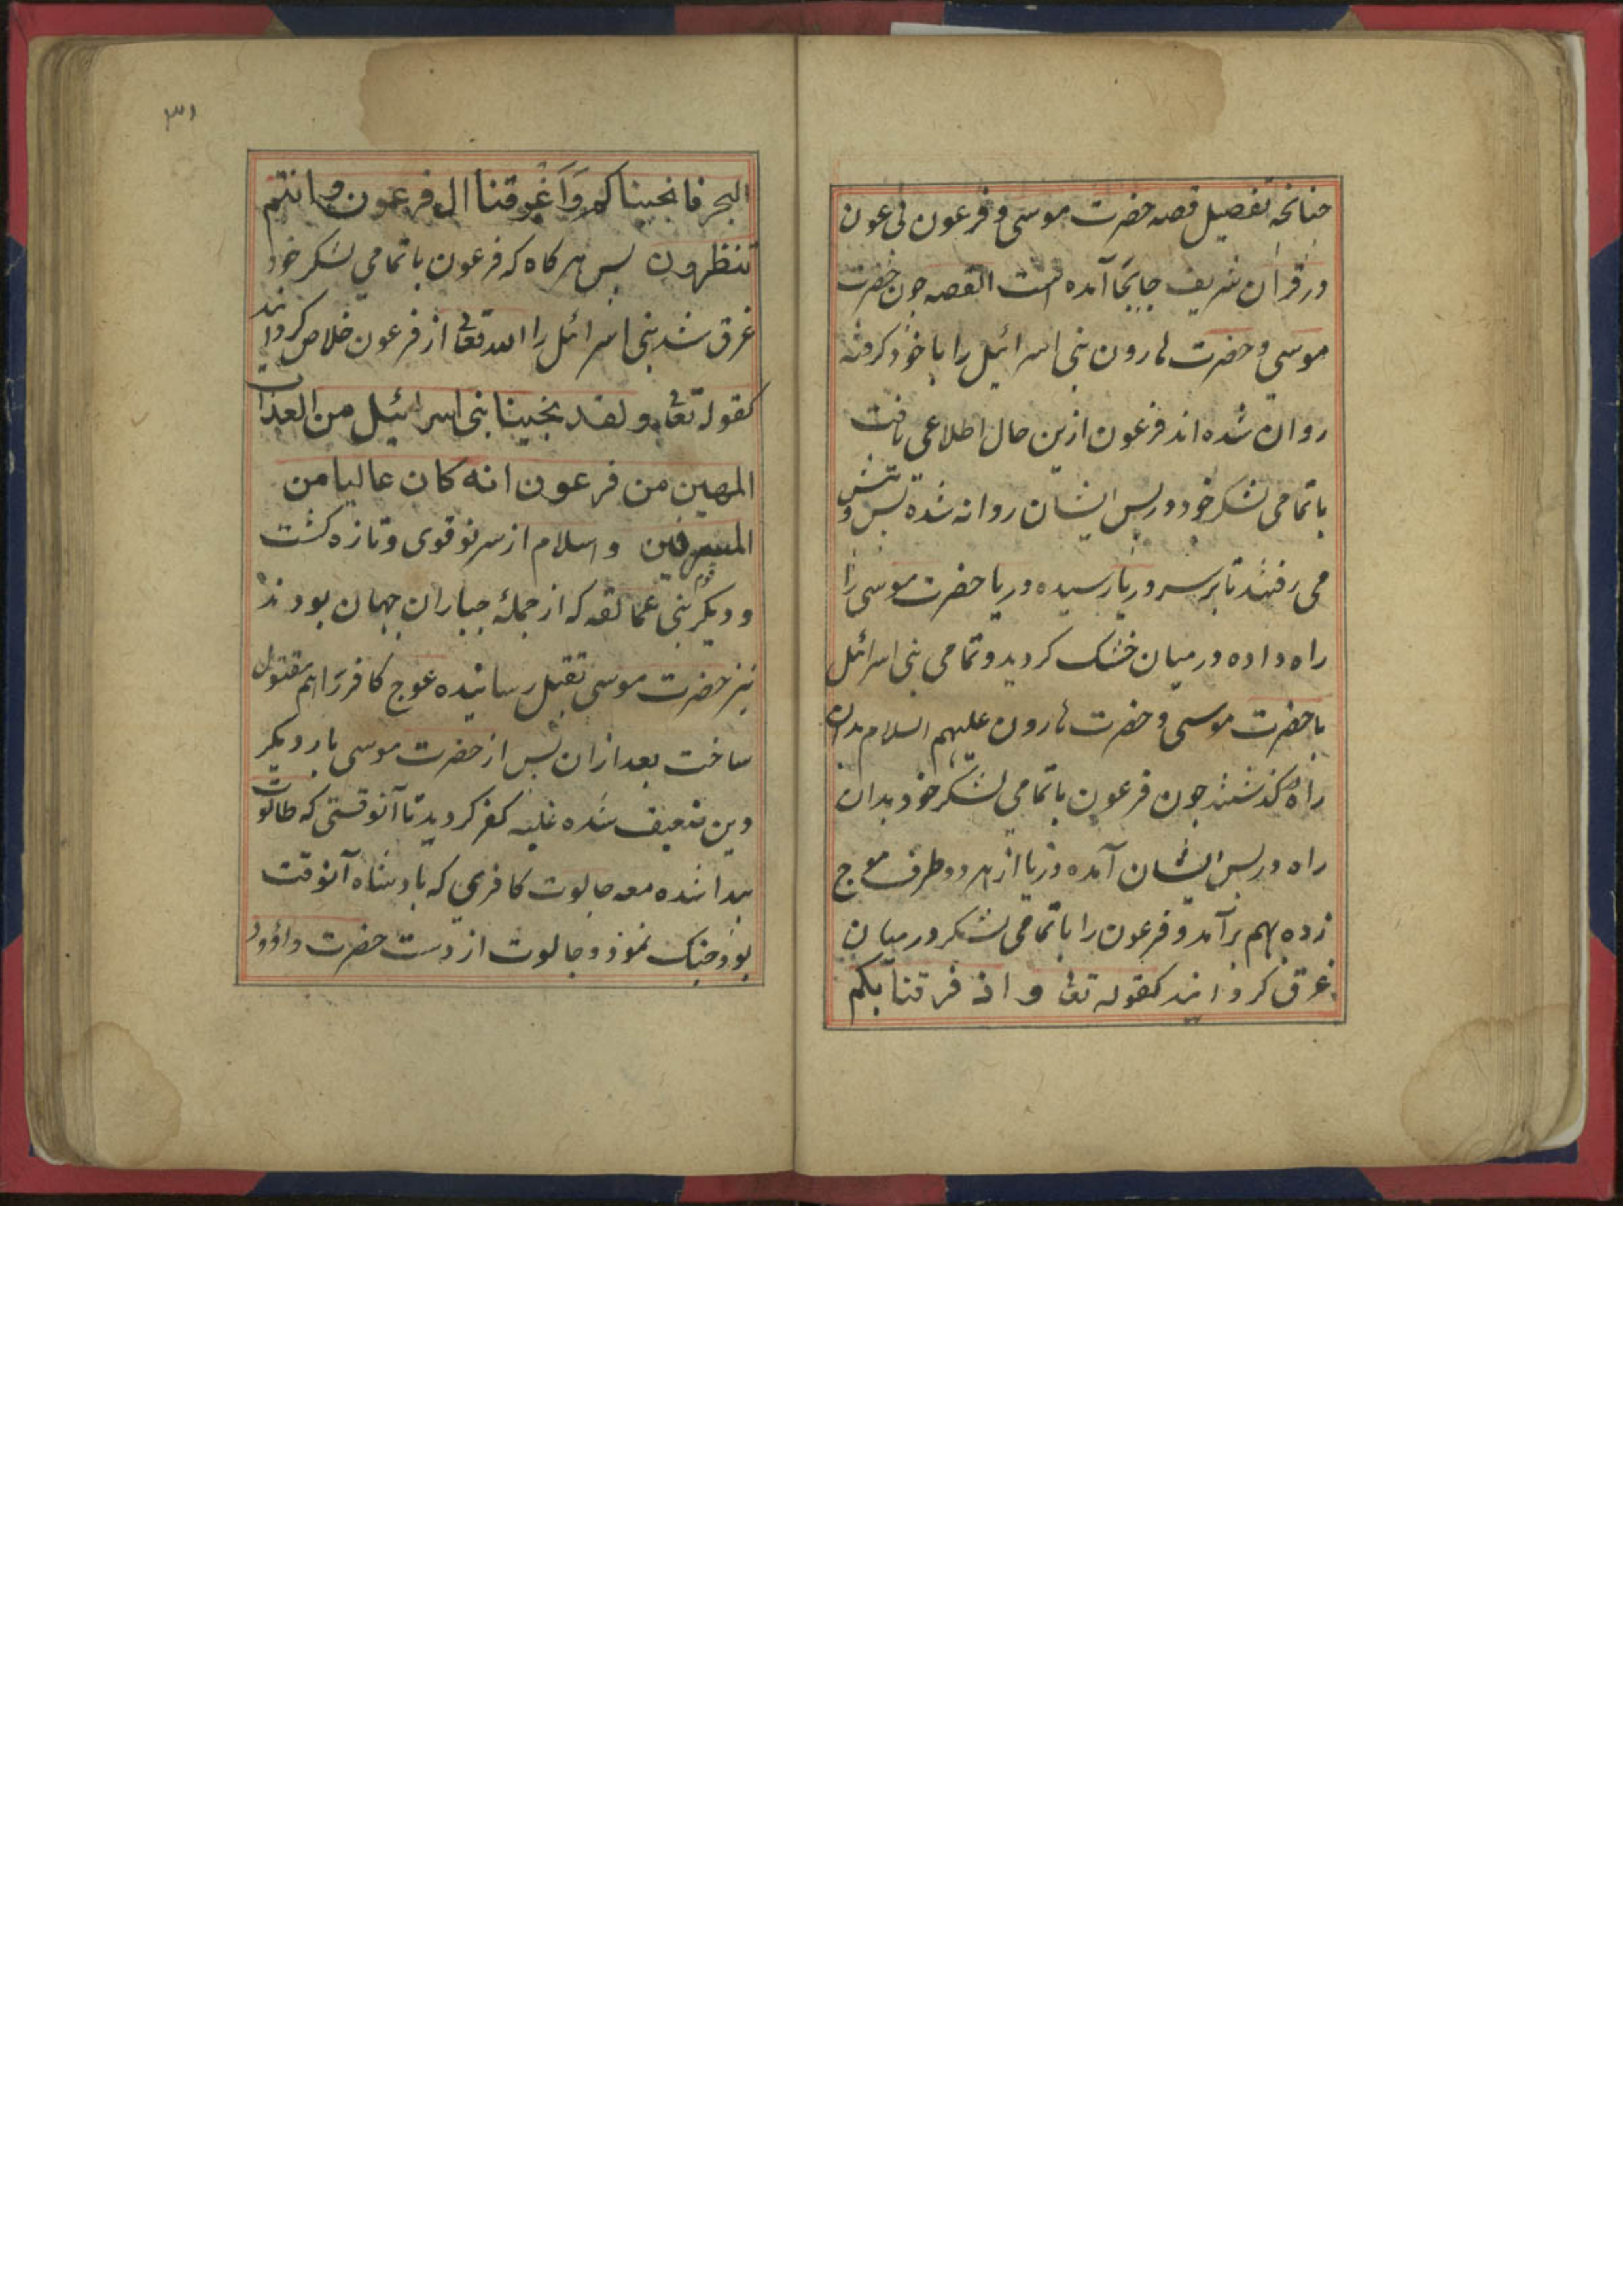 جنانچه تفصیل قصه حضرت موسی و فرعون بی عون
در قران شریف جابجا آمده است القصه جون حضرت
موسی و حضرت هارون بنی اسرائیل را با خود کرفته
روان شده اند فرعون ازین حال اطلاعی یافت
با تمامی لشکر خود در پس ایشان روانه شده پس و پیش
می رفتند تا بر سر دریا رسیده دریا حضرت موسی را
راه داده در میان خشک کردید و تمامی بنی اسرائل
با حضرت موسی و حضرت هارون علیهم السلام بدان
راه کذشتند جون فرعون با تمامی لشکر خود بدان
راه در پس ایشان آمده دریا از هر دو طرف موج
زده بهم برآمد و فرعون را با تمامی لشکر در میان
غرق کردانید کقوله تعا و اذ فرقنا بکم
۳۱
البحر فانجیناکم وَاَغْرقنا ال فرعون وانتم
تنظرون پس هر کاه که فرعون با تمامی لشکر خود
غرق شد بنی اسرائل را الله تعا از فرعون خلاص کردانید
کقوله تعا و لقد نجینا بنی اسرائیل من العذاب
المهین من فرعون انه کان عالیا من
المسرفین و اسلام از سر نو قوی و تازه کشت
و دیکر قوم بنی عمالقه که از جملهٔ جباران جهان بودند
نیز حضرت موسی بقتل رسانیده عوج کافر را هم مقتول
ساخت بعد ازان پس از حضرت موسی بار دیکر
دین ضعیف شده غلبه کفر کردید تا آنوقتی که طالوت
پیدا شده معه جالوت کافری که بادشاه آنوقت
بود جنک نمود و جالوت از دست حضرت داؤود